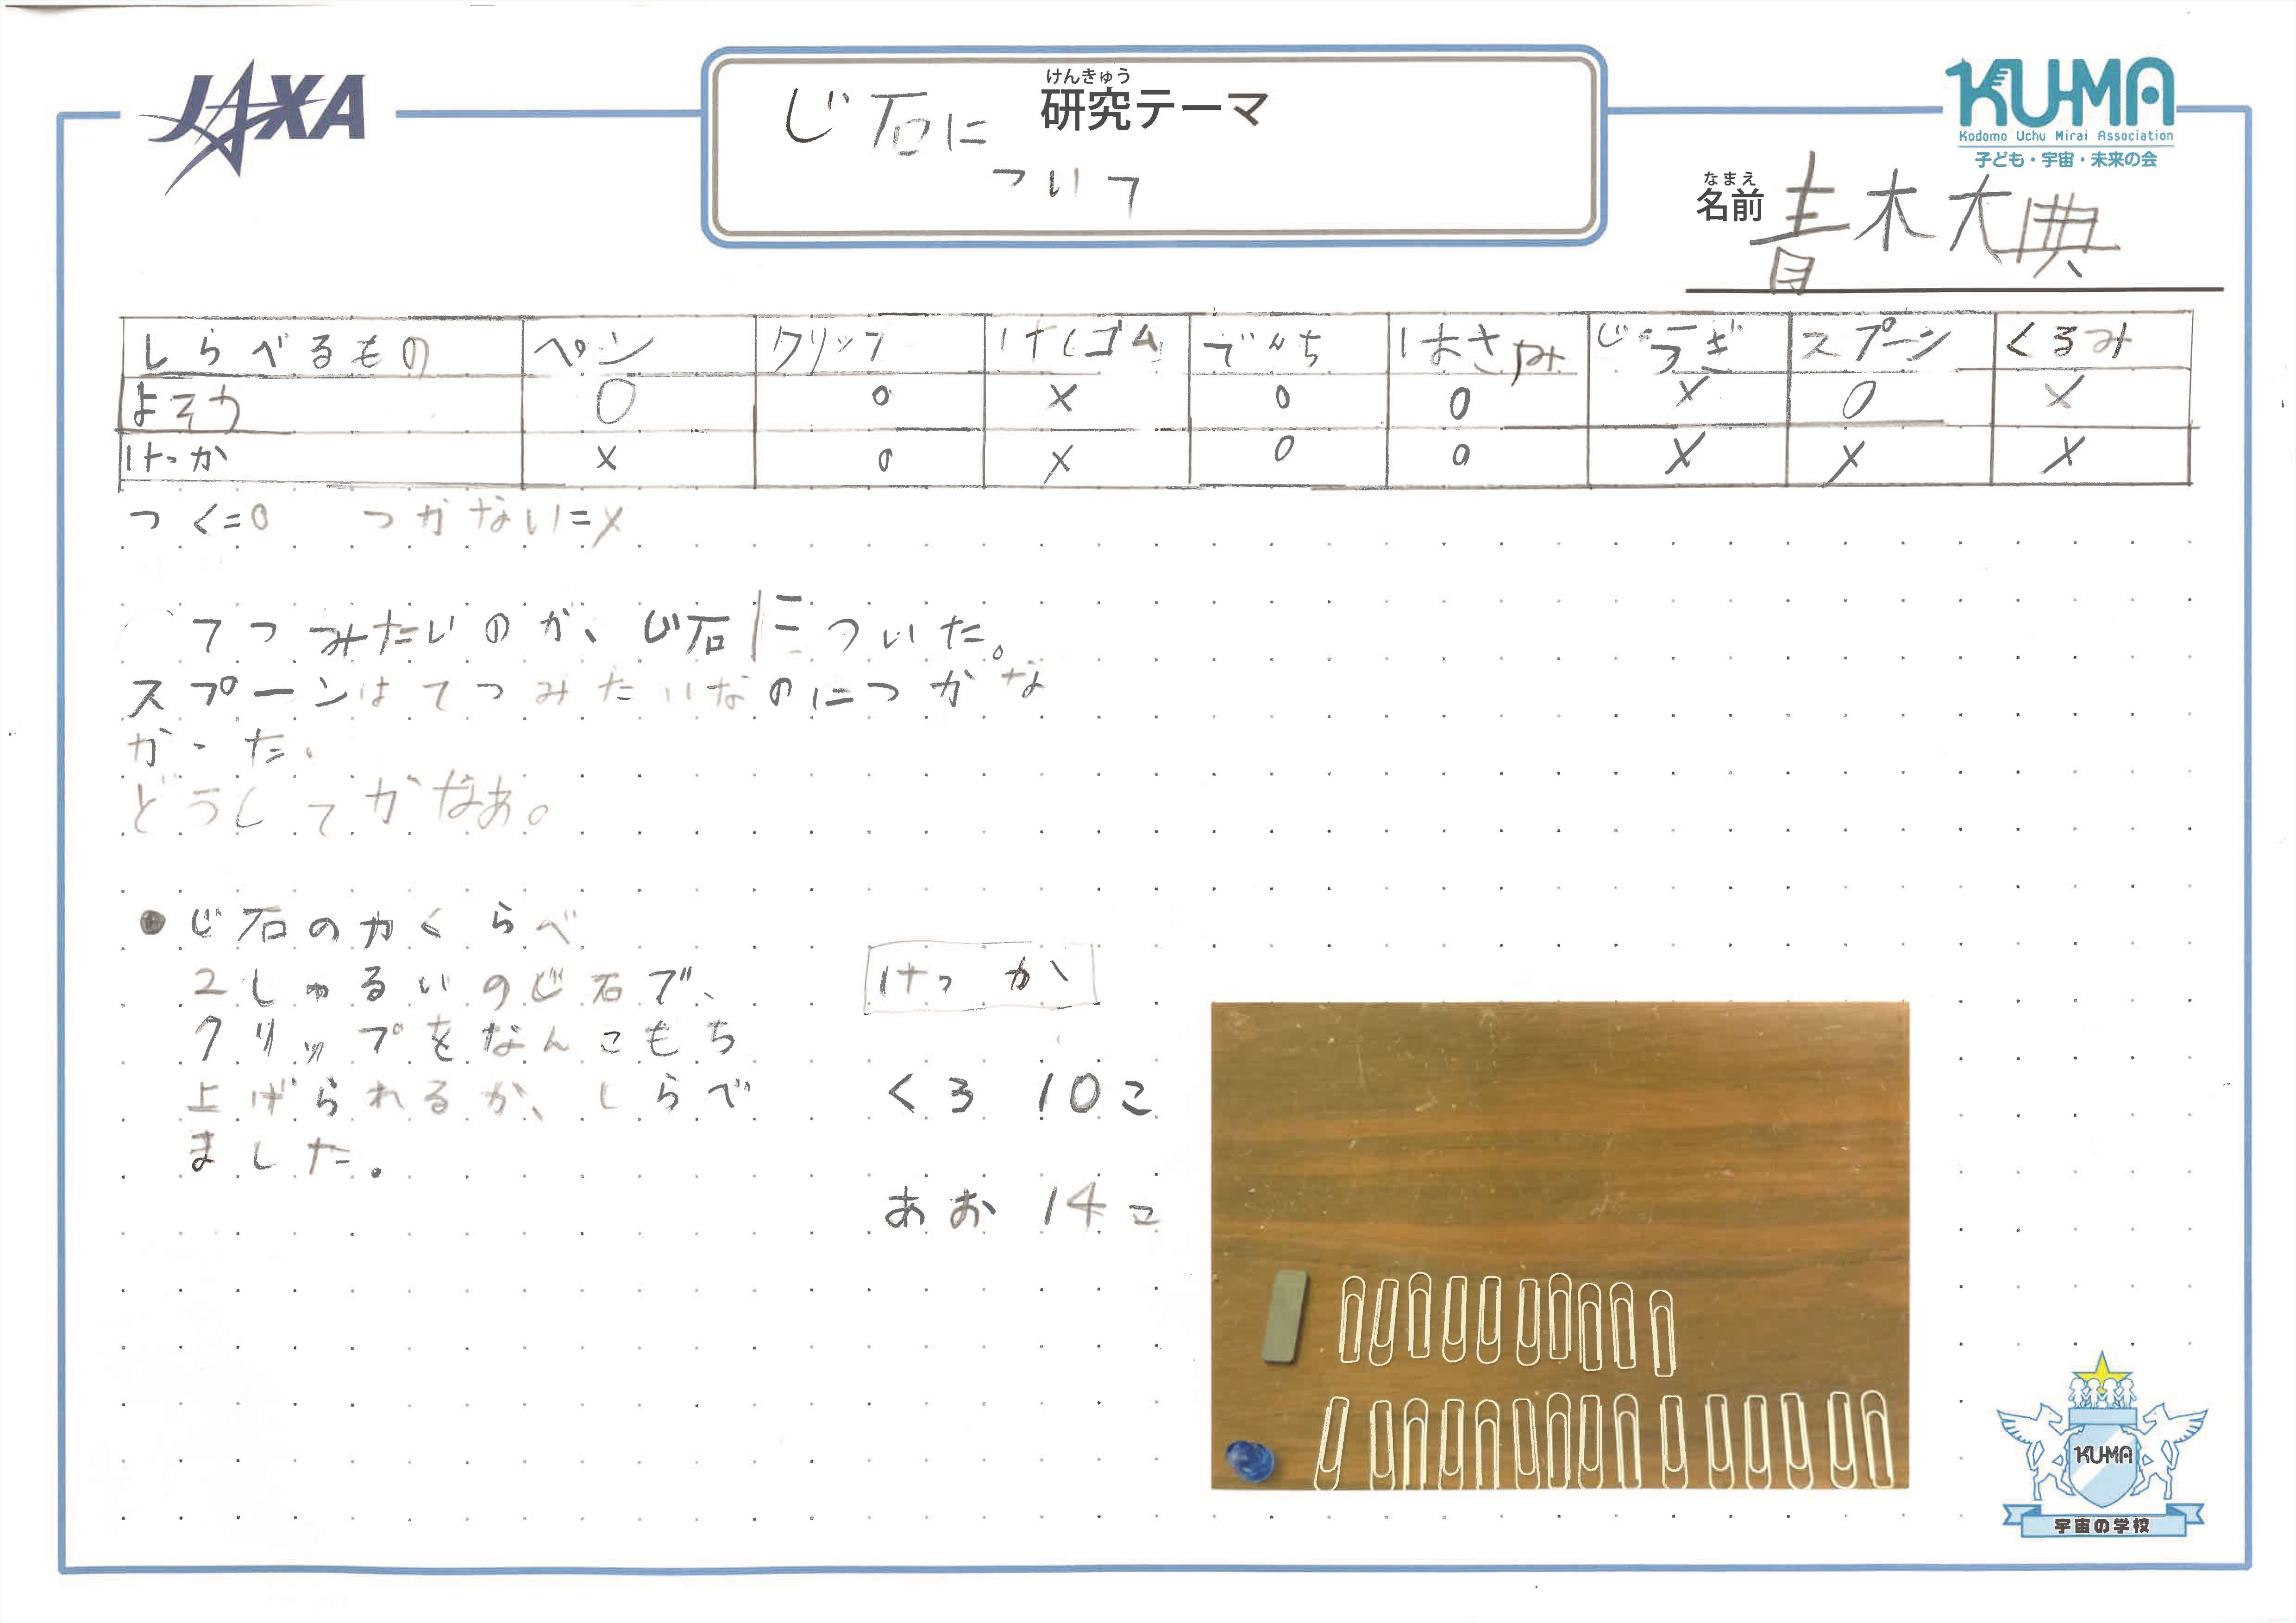 JAXA
けんきゅう
研究テーマ
じ石に
ついて
KU-MA
Kodomo Uchu Mirai Association
子ども・宇宙・未来の会
なまえ
名前 青木大典
しらべるもの ペン クリップ けしゴム でんち はさみ じょうぎ スプーン くるみ
よそう ○ ○ × ○ ○ × ○ ×
けっか × ○ × ○ ○ × × ×
つく=○ つかない=×
てつみたいのが、じ石についた。
スプーンはてつみたいなのにつかな
かった、
どうしてかなあ。
●じ石の力くらべ
2しゅるいのじ石で、
クリップをなんこもち
上げられるか、しらべ
ました。
けっか
くろ 10こ
あお 14こ
KU-MA
宇宙の学校